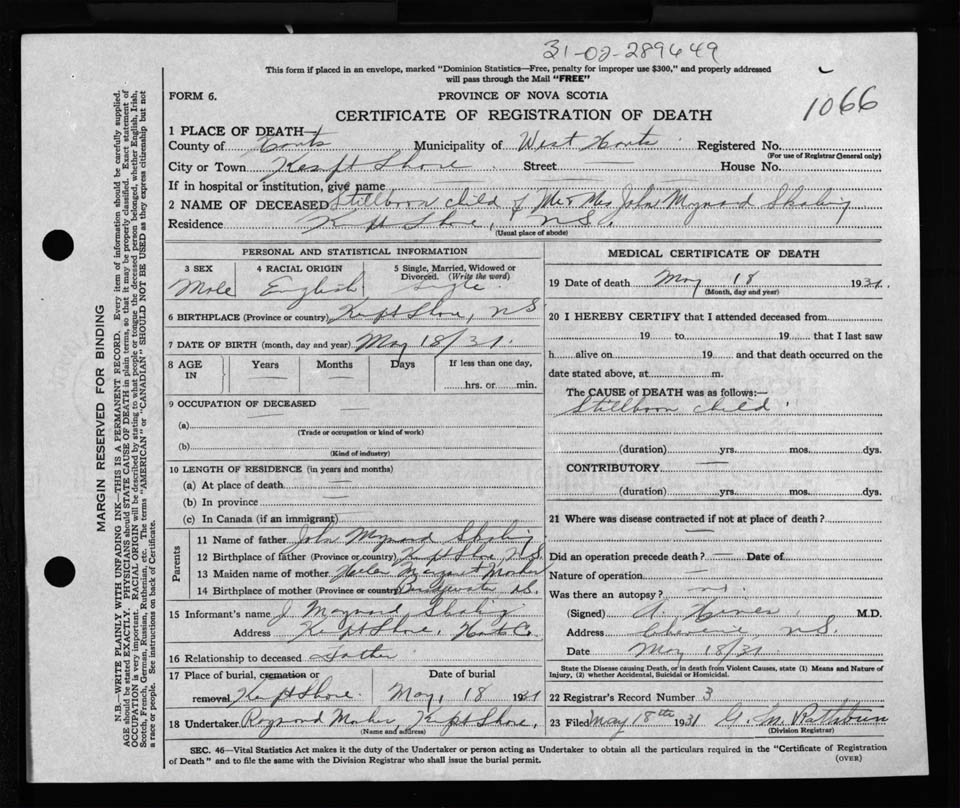 31-02-289649
This form if placed in an envelope, marked "Dominion Statistics—Free, penalty for improper use $300," and properly addressed
will pass through the Mail "FREE"
1066
FORM 6.
PROVINCE OF NOVA SCOTIA
CERTIFICATE OF REGISTRATION OF DEATH
1 PLACE OF DEATH—
County of Hants Municipality of West Hants Registered No.
(For use of Registrar General only)
City or Town Kempt Shore Street House No.
If in hospital or institution, give name
2 NAME OF DECEASED Stillborn child of Mr & Mrs John Mynard
Residence Kempt Shore, N.S.
(Usual place of abode)
PERSONAL AND STATISTICAL INFORMATION
3 SEX 4 RACIAL ORIGIN 5 Single, Married, Widowed or
Divorced. (Write the word)
Male English Single
6 BIRTHPLACE (Province or country) Kempt Shore, N.S.
7 DATE OF BIRTH (month, day and year) May 18/31.
8 AGE IN Years Months Days If less than one day,
hrs. or min.
9 OCCUPATION OF DECEASED
(a)
(Trade or occupation or kind of work)
(b)
(Kind of industry)
10 LENGTH OF RESIDENCE (in years and months)
(a) At place of death
(b) In province
(c) In Canada (if an immigrant)
Parents
11 Name of father John Mynard
12 Birthplace of father (Province or country) Kempt Shore N.S.
13 Maiden name of mother Helen Margaret Mosher
14 Birthplace of mother (Province or country) N.S.
15 Informant's name J. Maynard
Address Kempt Shore, Hants Co.
16 Relationship to deceased Father
17 Place of burial, cremation or Date of burial
removal Kempt Shore. May, 18 1931
18 Undertaker Raymond Mosher, Kempt Shore,
(Name and address)
MEDICAL CERTIFICATE OF DEATH
19 Date of death May 18 1931.
(Month, day and year)
20 I HEREBY CERTIFY that I attended deceased from
19 to 19 that I last saw
h alive on 19 and that death occurred on the
date stated above, at m.
The CAUSE of DEATH was as follows:—
Stillborn child.
(duration) yrs. mos. dys.
CONTRIBUTORY
(duration) yrs. mos. dys.
21 Where was disease contracted if not at place of death?
Did an operation precede death? — Date of
Nature of operation
Was there an autopsy? no.
(Signed) M.D.
Address Cheverie, N.S.
Date May 18/31
State the Disease causing Death, or in death from Violent Causes, state (1) Means and Nature of
Injury, (2) whether Accidental, Suicidal or Homicidal.
22 Registrar's Record Number 3
23 Filed May 18th 1931 G. M. Rathbun
(Division Registrar)
SEC. 46—Vital Statistics Act makes it the duty of the Undertaker or person acting as Undertaker to obtain all the particulars required in the "Certificate of Registration
of Death" and to file the same with the Division Registrar who shall issue the burial permit.
(OVER)
MARGIN RESERVED FOR BINDING
N.B.—WRITE PLAINLY WITH UNFADING INK—THIS IS A PERMANENT RECORD. Every item of information should be carefully supplied.
AGE should be stated EXACTLY. PHYSICIANS should STATE CAUSE OF DEATH in plain terms, so that it may be properly classified. Exact statement of
OCCUPATION is very important. RACIAL ORIGIN will be described by stating to what people or tongue the deceased person belonged, whether English, Irish,
Scotch, French, German, Russian, Ruthenian, etc. The terms "AMERICAN" or "CANADIAN" SHOULD NOT BE USED as they express citizenship but not
a race or people. See instructions on back of Certificate.